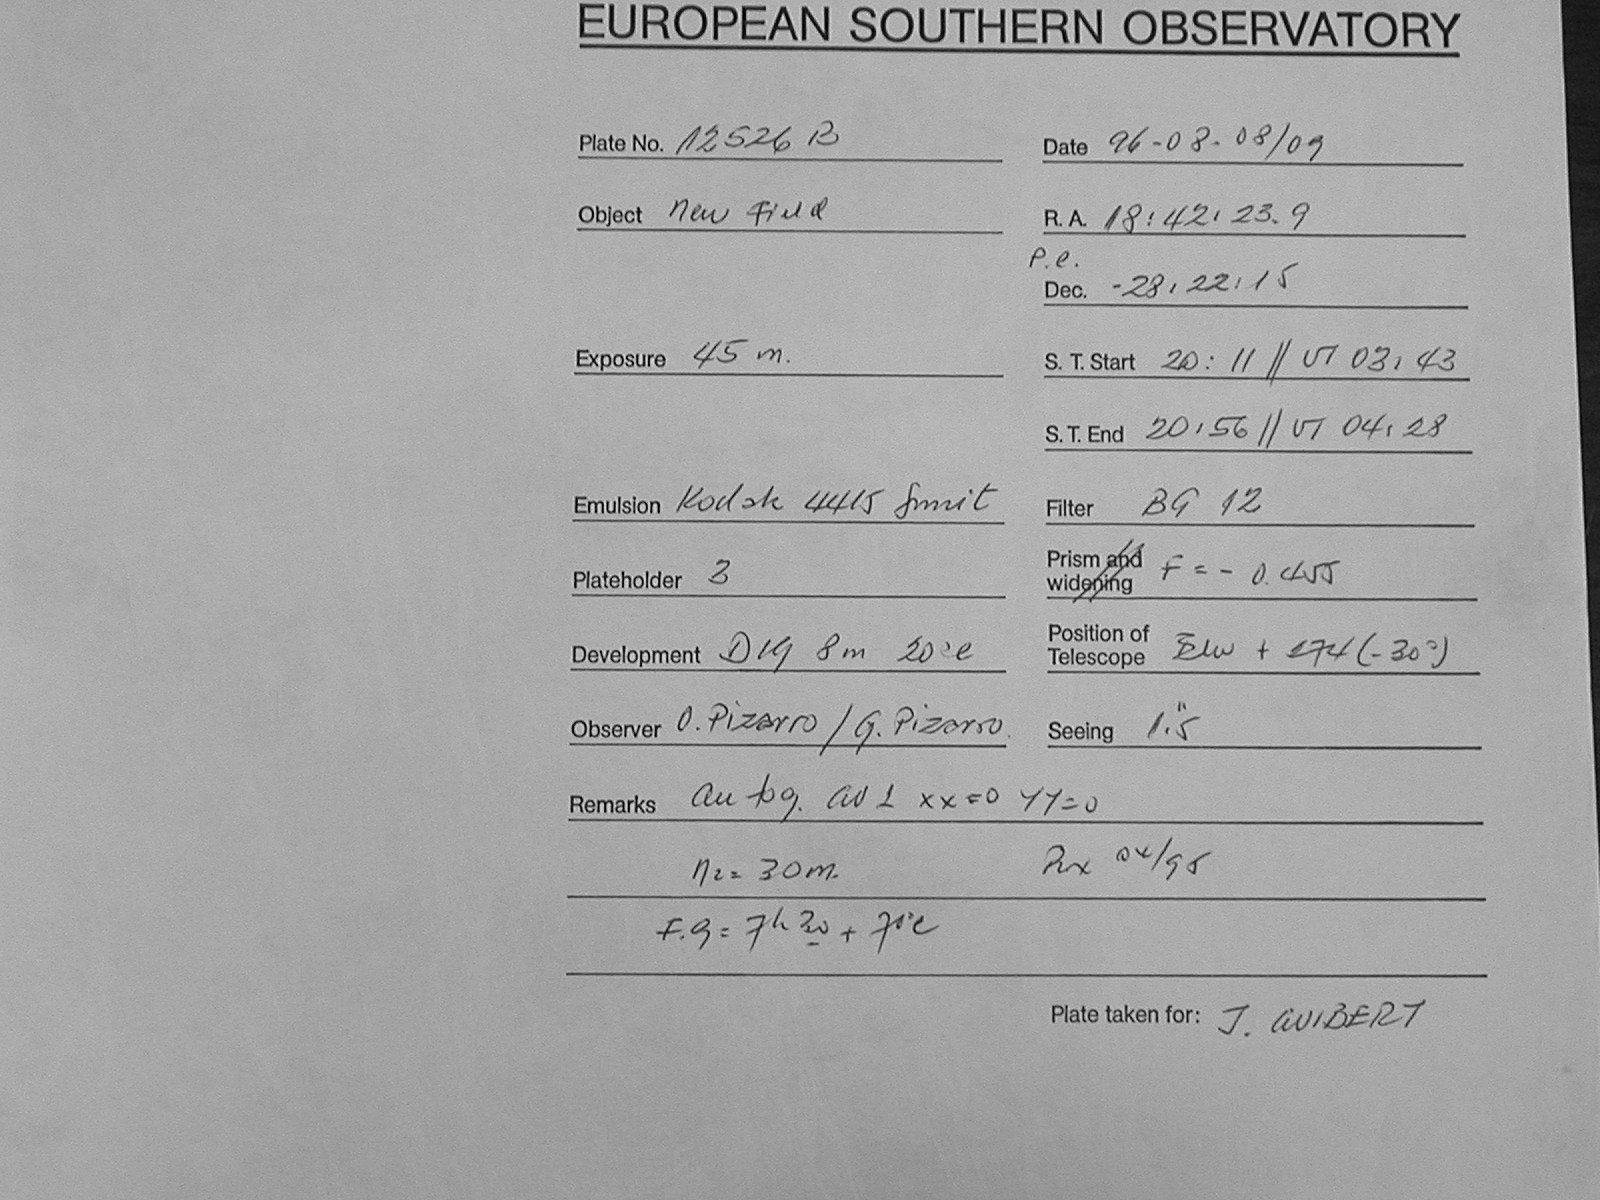 EUROPEAN SOUTHERN OBSERVATORY
Plate No. 12526 B
Date 96-08-08/09
Object New Field
R. A. 18:42:23.9
P.e.
Dec. -28:22:15
Exposure 45 m.
S. T. Start 20:11 // UT 03:43
S. T. End 20:56 // UT 04:28
Emulsion Kodak 4415
Filter BG 12
Plateholder 3
Prism and widening F = - 0.455
Development D19 8m 20°c
Position of Telescope + 274 (-30°)
Observer O. Pizarro / G. Pizarro.
Seeing 1."5
Remarks xx=0 YY=0
N2= 30m.
04/95
F.G = 7h 30 + 70°c
Plate taken for: J. GUIBERT